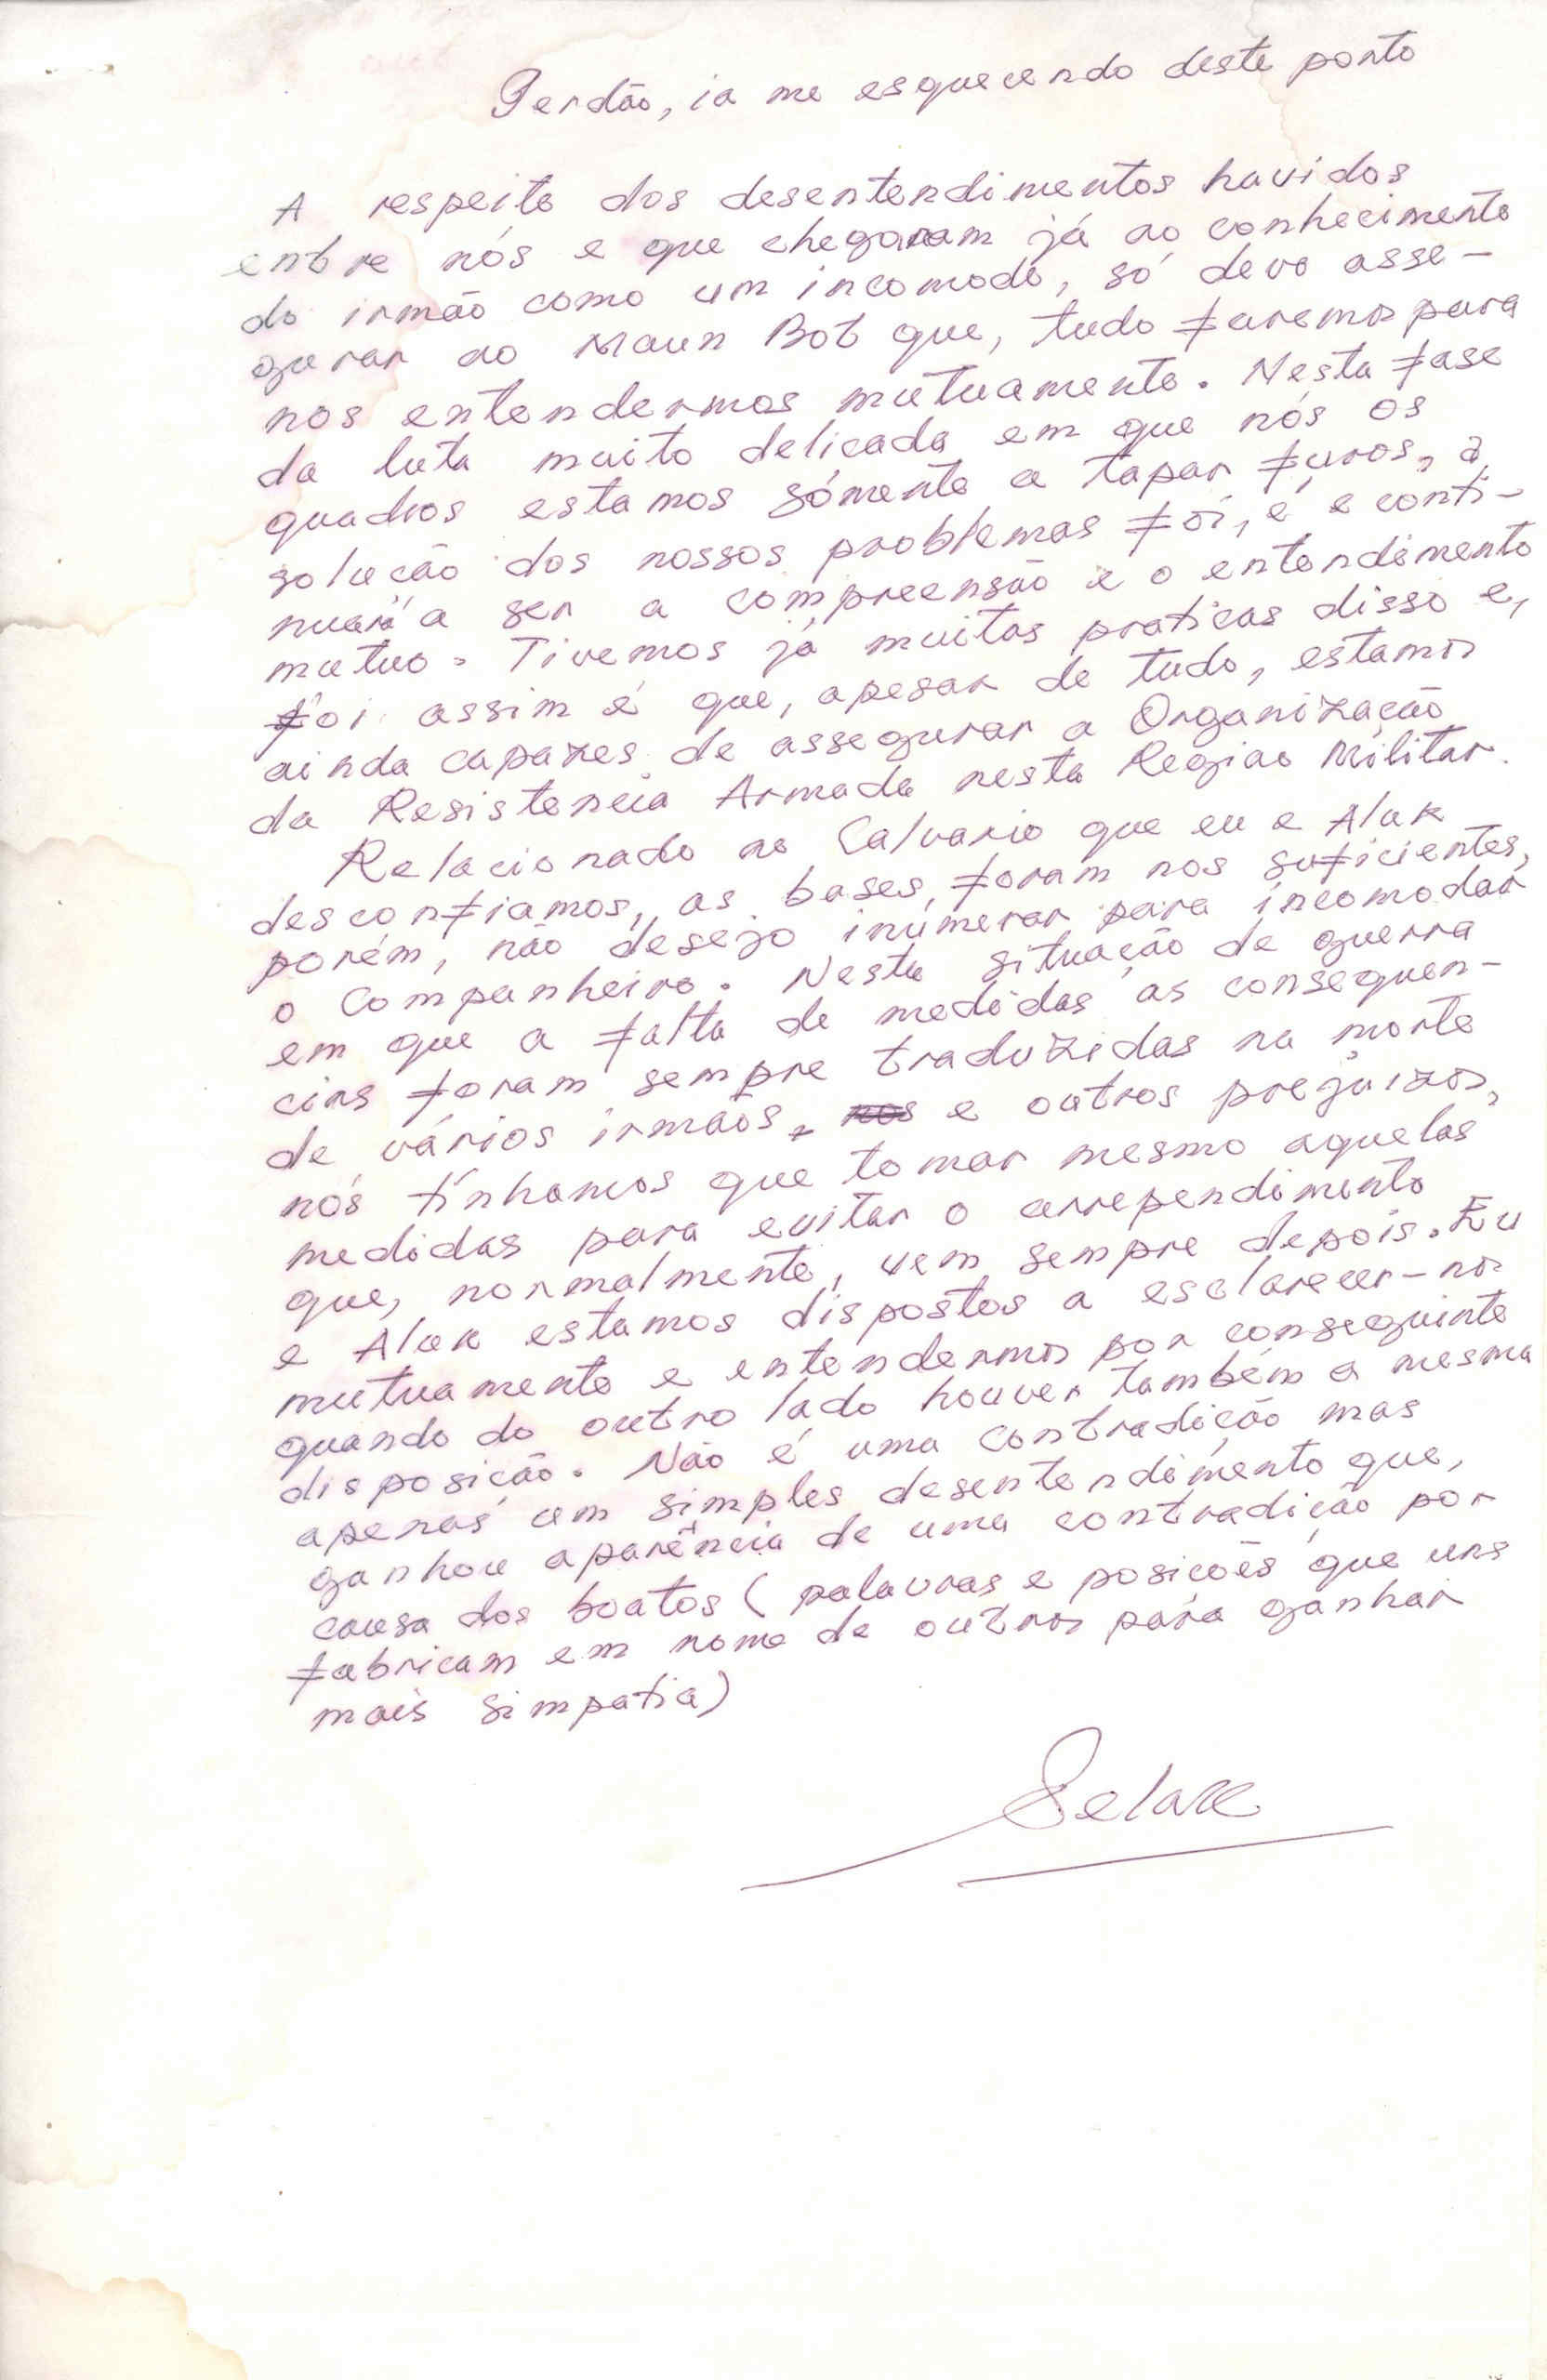 Perdão, ia me esquecendo deste ponto
A respeito dos desentendimentos havidos
entre nós e que chegaram já ao conhecimento
do irmão como um incomodo, só devo asse-
gurar ao Maun Bot que, tudo faremos para
nos entendermos mutuamente. Nesta fase
da luta muito delicada em que nós os
quadros estamos sómente a tapar furos, a
solução dos nossos problemas foi, é e conti-
nuará a ser a compreensão e o entendimento
mutuo. Tivemos já muitas praticas disso e,
foi assim é que, apesar de tudo, estamos
ainda capazes de assegurar a Organização
da Resistencia Armada nesta Região Militar.
Relacionado ao Calvario que eu e Alak
desconfiamos, as bases, foram nos suficientes,
porém, não desejo inúmerar para incomodar
o Companheiro. Nesta situação de guerra
em que a falta de medidas as consequen-
cias foram sempre traduzidas na morte
de vários irmãos, nos e outros prejuizos,
nós tínhamos que tomar mesmo aquelas
medidas para evitar o arrependimento
que, normalmente, vem sempre depois. Eu
e Alak estamos dispostos a esclarecer-nos
mutuamente e entendermos por conseguinte
quando do outro lado houver também a mesma
disposição. Não é uma contradição mas
apenas um simples desentendimento que,
ganhou aparência de uma contradição por
causa dos boatos (palavras e posições que uns
fabricam em nome de outros para ganhar
mais simpatia)
Selak